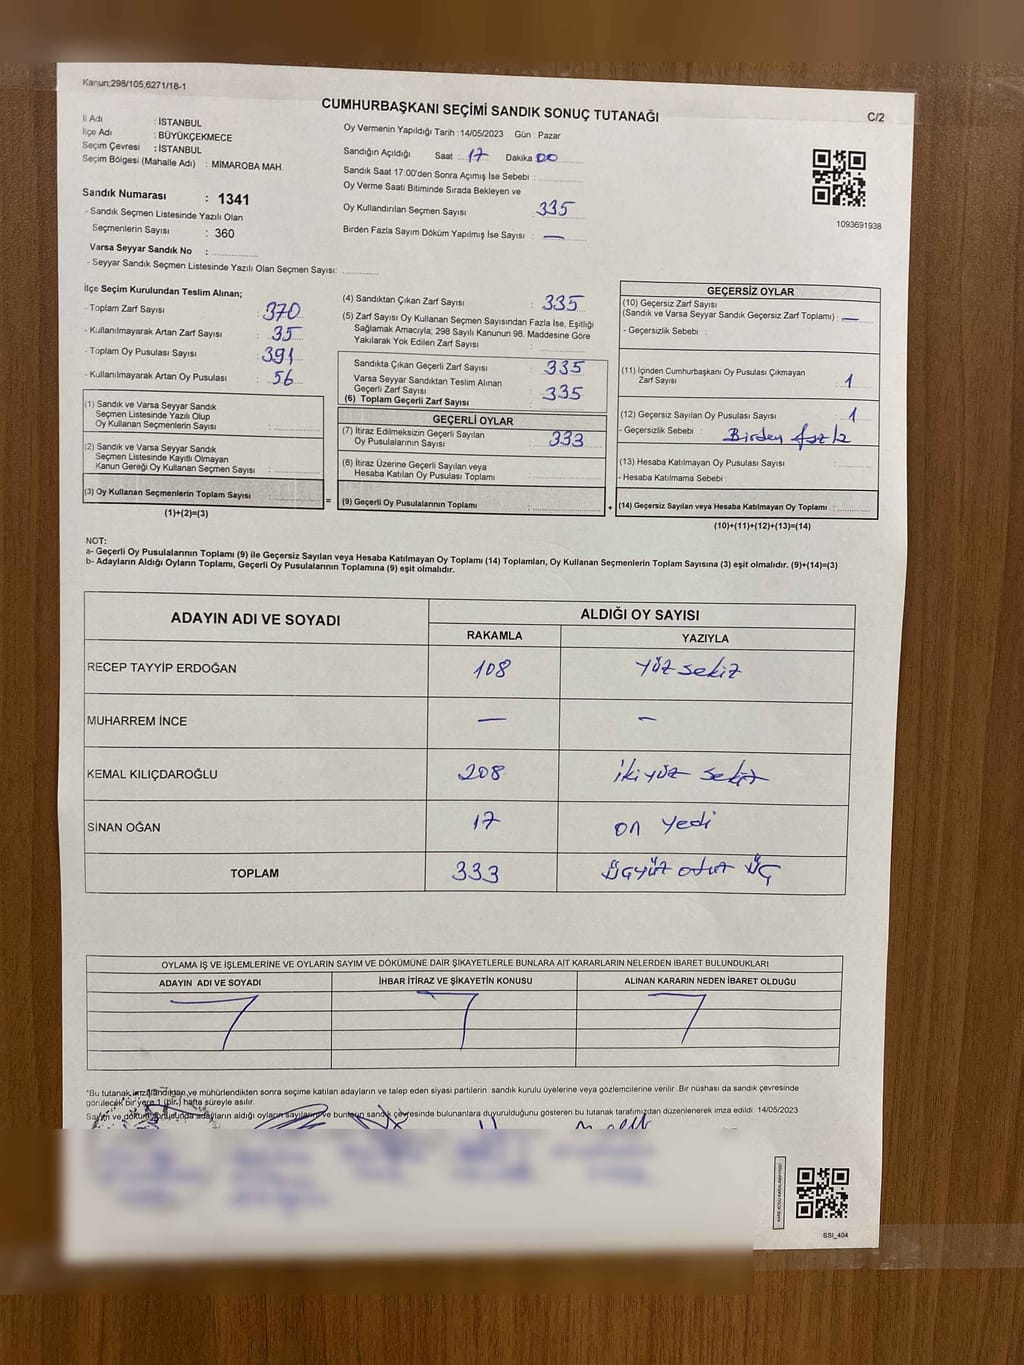 Kanun:298/105;6271/18-1
CUMHURBAŞKANI SEÇİMİ SANDIK SONUÇ TUTANAĞI
C/2
İl Adı : İSTANBUL
İlçe Adı : BÜYÜKÇEKMECE
Seçim Çevresi : İSTANBUL
Seçim Bölgesi (Mahalle Adı) : MİMAROBA MAH.
Sandık Numarası : 1341
- Sandık Seçmen Listesinde Yazılı Olan
Seçmenlerin Sayısı : 360
Varsa Seyyar Sandık No :
- Seyyar Sandık Seçmen Listesinde Yazılı Olan Seçmen Sayısı:
Oy Vermenin Yapıldığı Tarih : 14/05/2023 Gün : Pazar
Sandığın Açıldığı Saat : 17 Dakika 00
Sandık Saat 17:00'den Sonra Açımış İse Sebebi :
Oy Verme Saati Bitiminde Sırada Bekleyen ve
Oy Kullandırılan Seçmen Sayısı 335
Birden Fazla Sayım Döküm Yapılmış İse Sayısı : —
1093691938
İlçe Seçim Kurulundan Teslim Alınan;
- Toplam Zarf Sayısı : 370
- Kullanılmayarak Artan Zarf Sayısı : 35
- Toplam Oy Pusulası Sayısı : 391
- Kullanılmayarak Artan Oy Pusulası : 56
(1) Sandık ve Varsa Seyyar Sandık
Seçmen Listesinde Yazılı Olup
Oy Kullanan Seçmenlerin Sayısı :
(2) Sandık ve Varsa Seyyar Sandık
Seçmen Listesinde Kayıtlı Olmayan
Kanun Gereği Oy Kullanan Seçmen Sayısı :
(3) Oy Kullanan Seçmenlerin Toplam Sayısı :
(1)+(2)=(3)
=
(4) Sandıktan Çıkan Zarf Sayısı : 335
(5) Zarf Sayısı Oy Kullanan Seçmen Sayısından Fazla İse, Eşitliği
Sağlamak Amacıyla; 298 Sayılı Kanunun 98. Maddesine Göre
Yakılarak Yok Edilen Zarf Sayısı :
Sandıkta Çıkan Geçerli Zarf Sayısı : 335
Varsa Seyyar Sandıktan Teslim Alınan
Geçerli Zarf Sayısı : 335
(6) Toplam Geçerli Zarf Sayısı
GEÇERLİ OYLAR
(7) İtiraz Edilmeksizin Geçerli Sayılan
Oy Pusulalarının Sayısı : 333
(8) İtiraz Üzerine Geçerli Sayılan veya
Hesaba Katılan Oy Pusulası Toplamı :
(9) Geçerli Oy Pusulalarının Toplamı :
+
GEÇERSİZ OYLAR
(10) Geçersiz Zarf Sayısı
(Sandık ve Varsa Seyyar Sandık Geçersiz Zarf Toplamı) : —
- Geçersizlik Sebebi :
(11) İçinden Cumhurbaşkanı Oy Pusulası Çıkmayan
Zarf Sayısı : 1
(12) Geçersiz Sayılan Oy Pusulası Sayısı : 1
- Geçersizlik Sebebi : Birden fazla
(13) Hesaba Katılmayan Oy Pusulası Sayısı :
- Hesaba Katılmama Sebebi :
(14) Geçersiz Sayılan veya Hesaba Katılmayan Oy Toplamı :
(10)+(11)+(12)+(13)=(14)
NOT:
a- Geçerli Oy Pusulalarının Toplamı (9) ile Geçersiz Sayılan veya Hesaba Katılmayan Oy Toplamı (14) Toplamları, Oy Kullanan Seçmenlerin Toplam Sayısına (3) eşit olmalıdır. (9)+(14)=(3)
b- Adayların Aldığı Oyların Toplamı, Geçerli Oy Pusulalarının Toplamına (9) eşit olmalıdır.
ADAYIN ADI VE SOYADI
ALDIĞI OY SAYISI
RAKAMLA YAZIYLA
RECEP TAYYİP ERDOĞAN 108 yüz sekiz
MUHARREM İNCE — –
KEMAL KILIÇDAROĞLU 208 iki yüz sekiz
SİNAN OĞAN 17 on yedi
TOPLAM 333 üçyüz otuz üç
OYLAMA İŞ VE İŞLEMLERİNE VE OYLARIN SAYIM VE DÖKÜMÜNE DAİR ŞİKAYETLERLE BUNLARA AİT KARARLARIN NELERDEN İBARET BULUNDUKLARI
ADAYIN ADI VE SOYADI İHBAR İTİRAZ VE ŞİKAYETİN KONUSU ALINAN KARARIN NEDEN İBARET OLDUĞU
"Bu tutanak imzalandıktan ve mühürlendikten sonra seçime katılan adayların ve talep eden siyasi partilerin sandık kurulu üyelerine veya gözlemcilerine verilir .Bir nüshası da sandık çevresinde
görülecek bir yere 1 (bir) hafta süreyle asılır.
Sayım ve döküm sonucunda adayların aldığı oyların sayılarını ve bunların sandık çevresinde bulunanlara duyurulduğunu gösteren bu tutanak tarafımızdan düzenlenerek imza edildi 14/05/2023
SSI_404